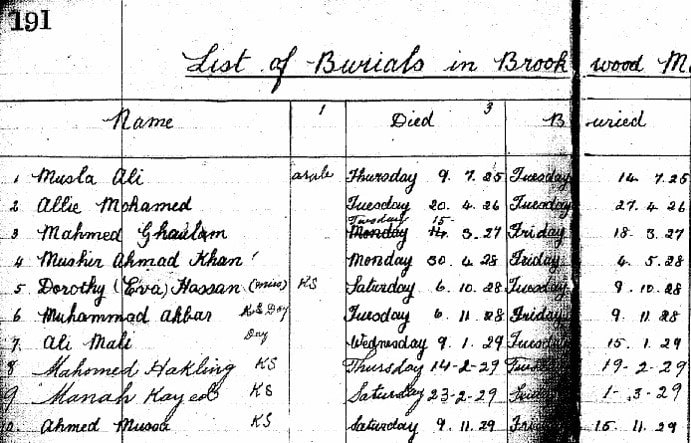 191
List of Burials in Brook wood M
Name 1 Died 3 Buried
1 Musla Ali arab Thursday 9. 7. 25 Tuesday 14. 7. 25
2 Allie Mohamed Tuesday 20. 4. 26 Tuesday 27. 4. 26
Tuesday 15
3 Mahmed Ghaulam Monday 14. 3. 27 Friday 18. 3. 27
4 Mushir Ahmad Khan Monday 30. 4. 28 Friday 4. 5. 28
5 Dorothy (Eva) Hassan (miss) KS Saturday 6. 10. 28 Tuesday 9. 10. 28
6 Muhammad Akbar Tuesday 6. 11. 28 Friday 9. 11. 28
7. Ali Mali Day Wednesday 9. 1. 29 Tuesday 15. 1. 29
8 Mahomed Hakling KS Thursday 14-2-29 Tuesday 19-2-29
9 Manah Kayed KS Saturday 23-2-29 1-3-29
Ahmed Mussa KS Saturday 9. 11. 29 Fri 15. 11. 29